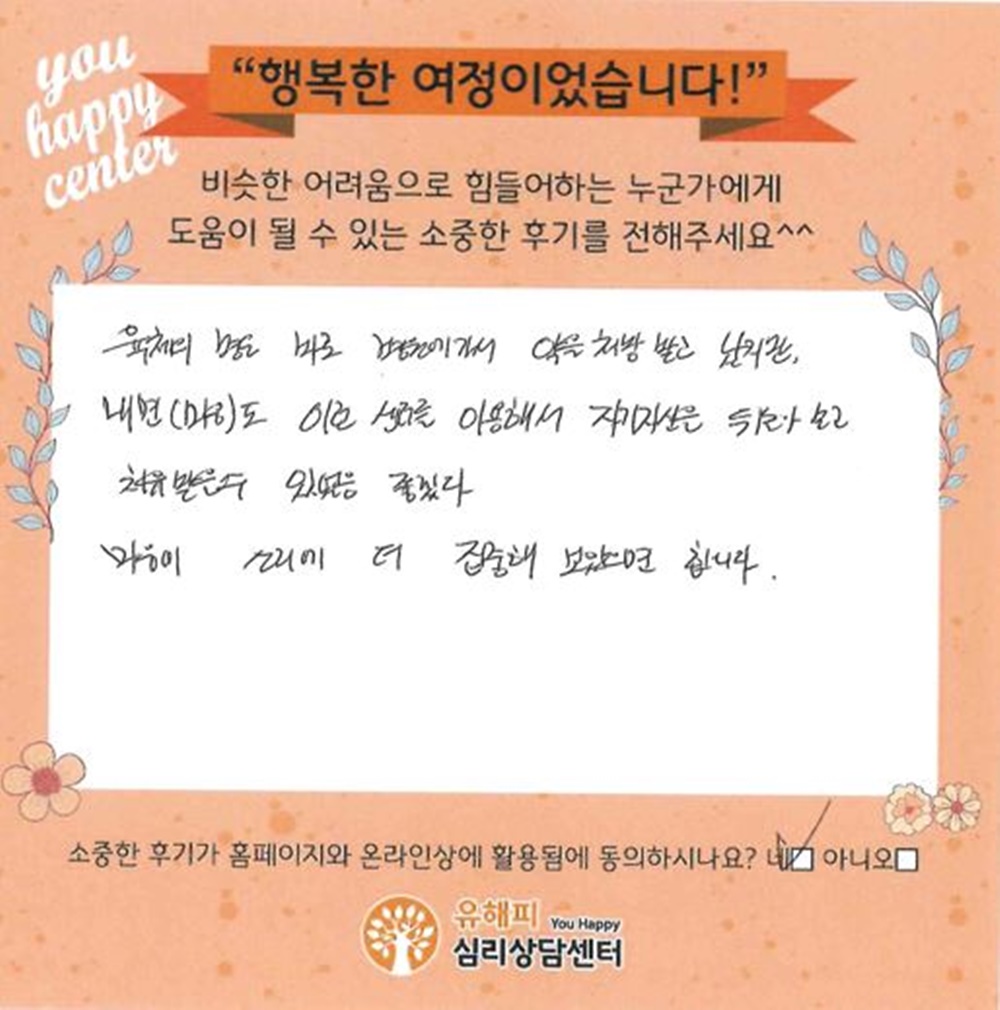 you
happy
center
“행복한 여정이었습니다!”
비슷한 어려움으로 힘들어하는 누군가에게
도움이 될 수 있는 소중한 후기를 전해주세요^^
육체의 병은 바로 병원에가서 약을 처방 받고 낫지만,
내면(마음)도 이런 센터를 이용해서 자기자신을 뒤돌아 보고
치유받을수 있었음 좋겠다
마음이 소리에 더 집중해 보았으면 합니다.
소중한 후기가 홈페이지와 온라인상에 활용됨에 동의하시나요? 네 아니오
유해피 You Happy
심리상담센터